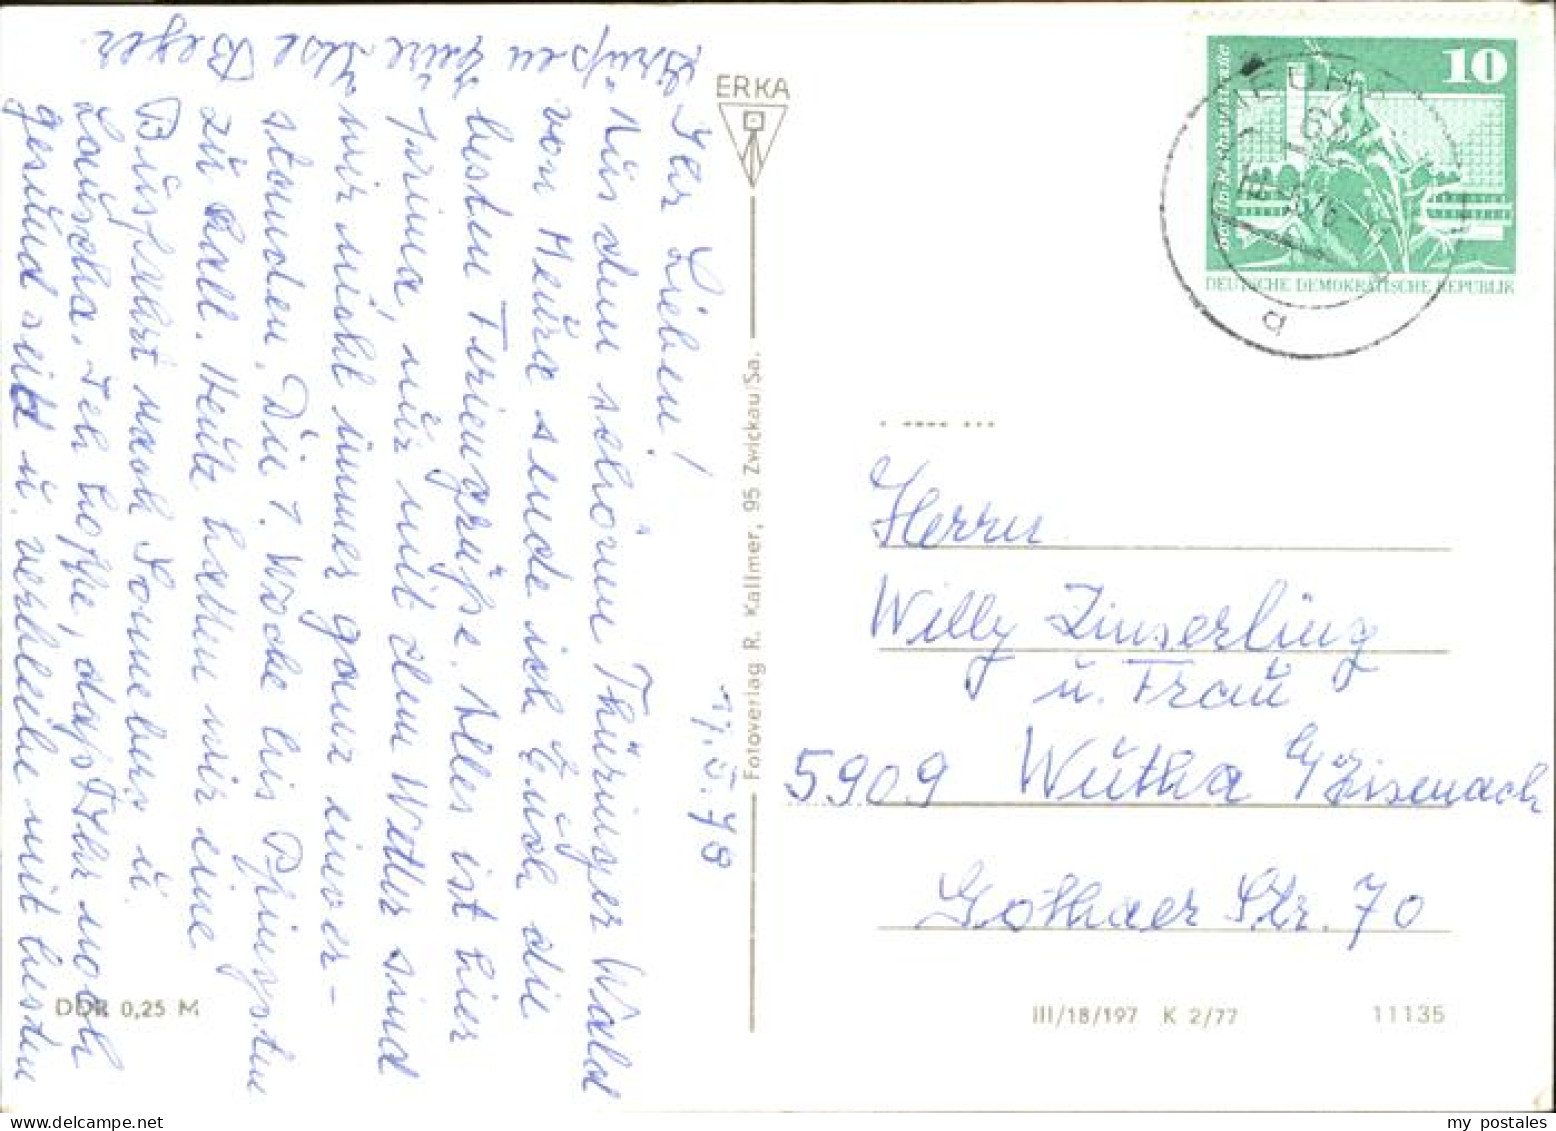 17.5.78
Ihr Lieben!
Aus dem schönen Thüringer Wald
von Meura sende ich Euch die
besten Feriengrüße. Alles ist hier
prima, nur mit dem Wetter sind
wir nicht immer ganz einver-
standen. Die 1. Woche bis Pfingsten
zu kalt. Heute hatten wir eine
Busfahrt nach Sonneberg u.
Lauscha. Ich hoffe, dass Ihr noch
gesund seid u. verbleibe mit besten
Grüßen Eure Ilse Beyer
ERKA
Fotoverlag R. Kallmer, 95 Zwickau/Sa.
DDR 0,25 M
10
Berlin
DEUTSCHE DEMOKRATISCHE REPUBLIK
b
Herrn
Willy Zinserling
u. Frau
5909 Wutha b/Eisenach
Gothaer Str. 70
III/18/197 K 2/77
11135
my postales